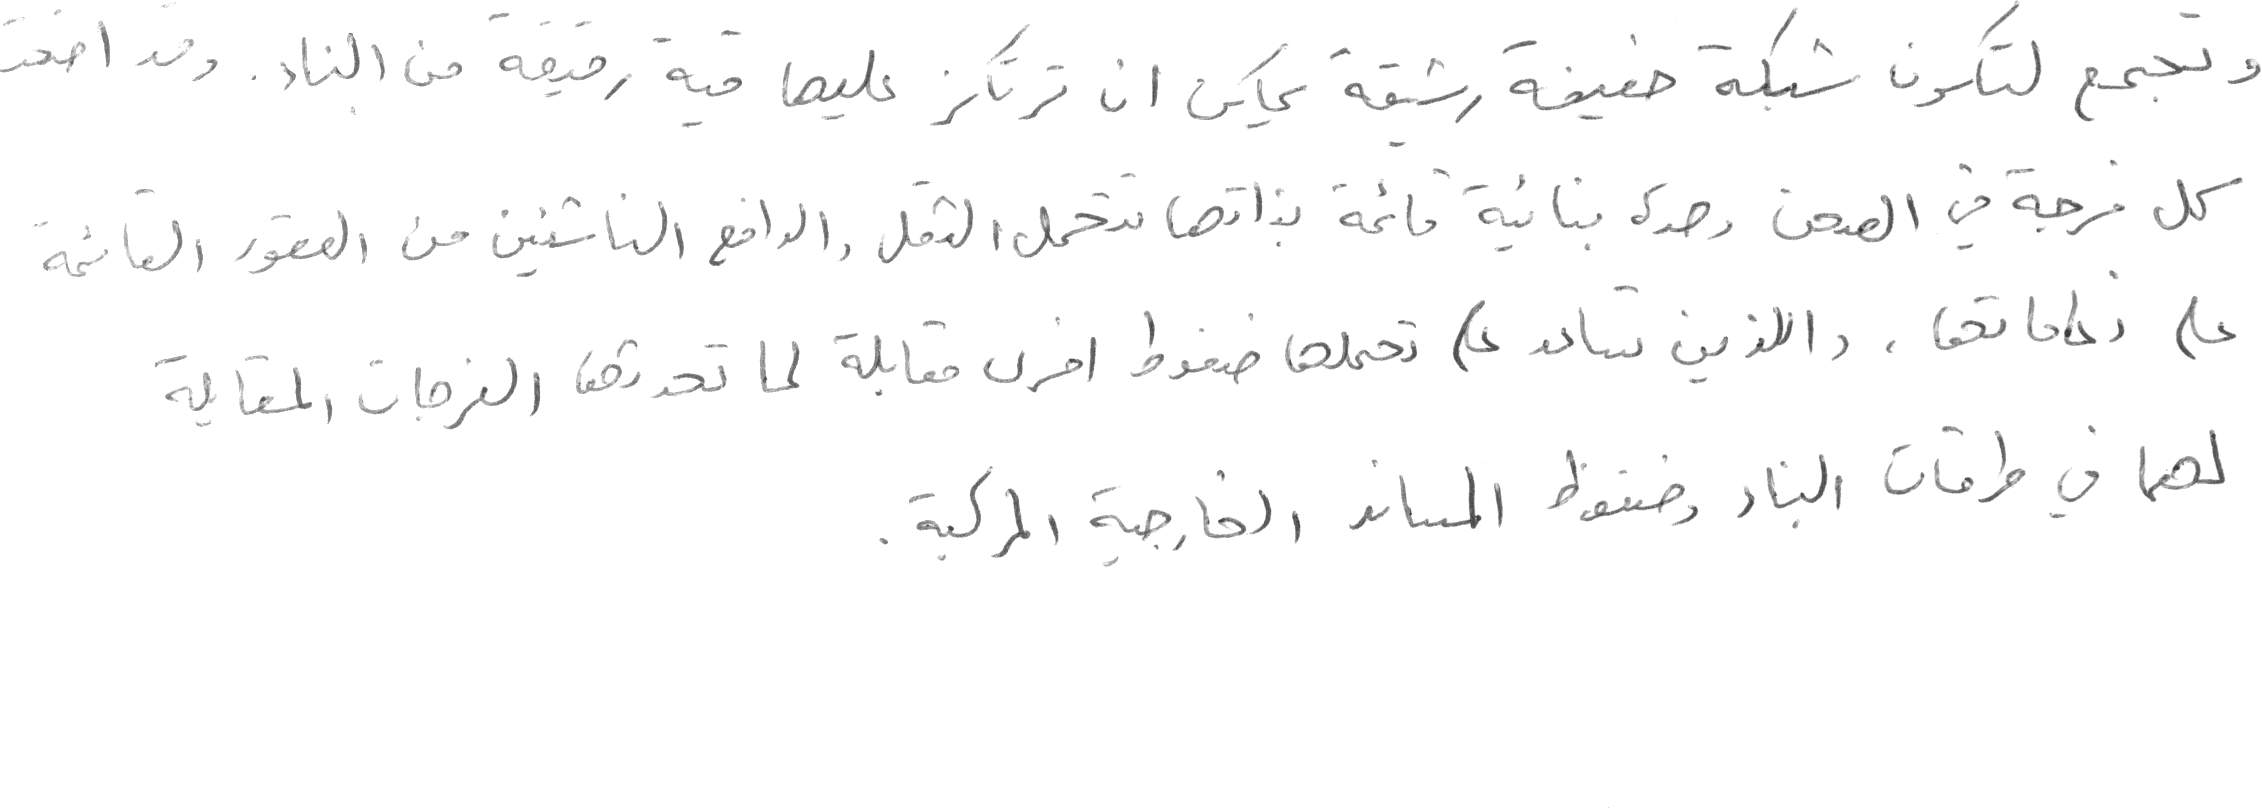 وتجمع لتكون شبكة خفيفة رشيقة يمكن ان ترتكز عليها قبة رقيقة من البناء. وقد اضحت
كل فرجة في الصحن وحدة بنائية قائمة بذاتها تتحمل الثقل والدافع الناشئين من العقود القائمة
على دعاماتها، واللذين تساعد على تحملها ضغوط اخرى مقابلة لما تحدثها الفرجات المقابلة
لهما في طرقات البناء وضغوط المساند الخارجية المركبة.